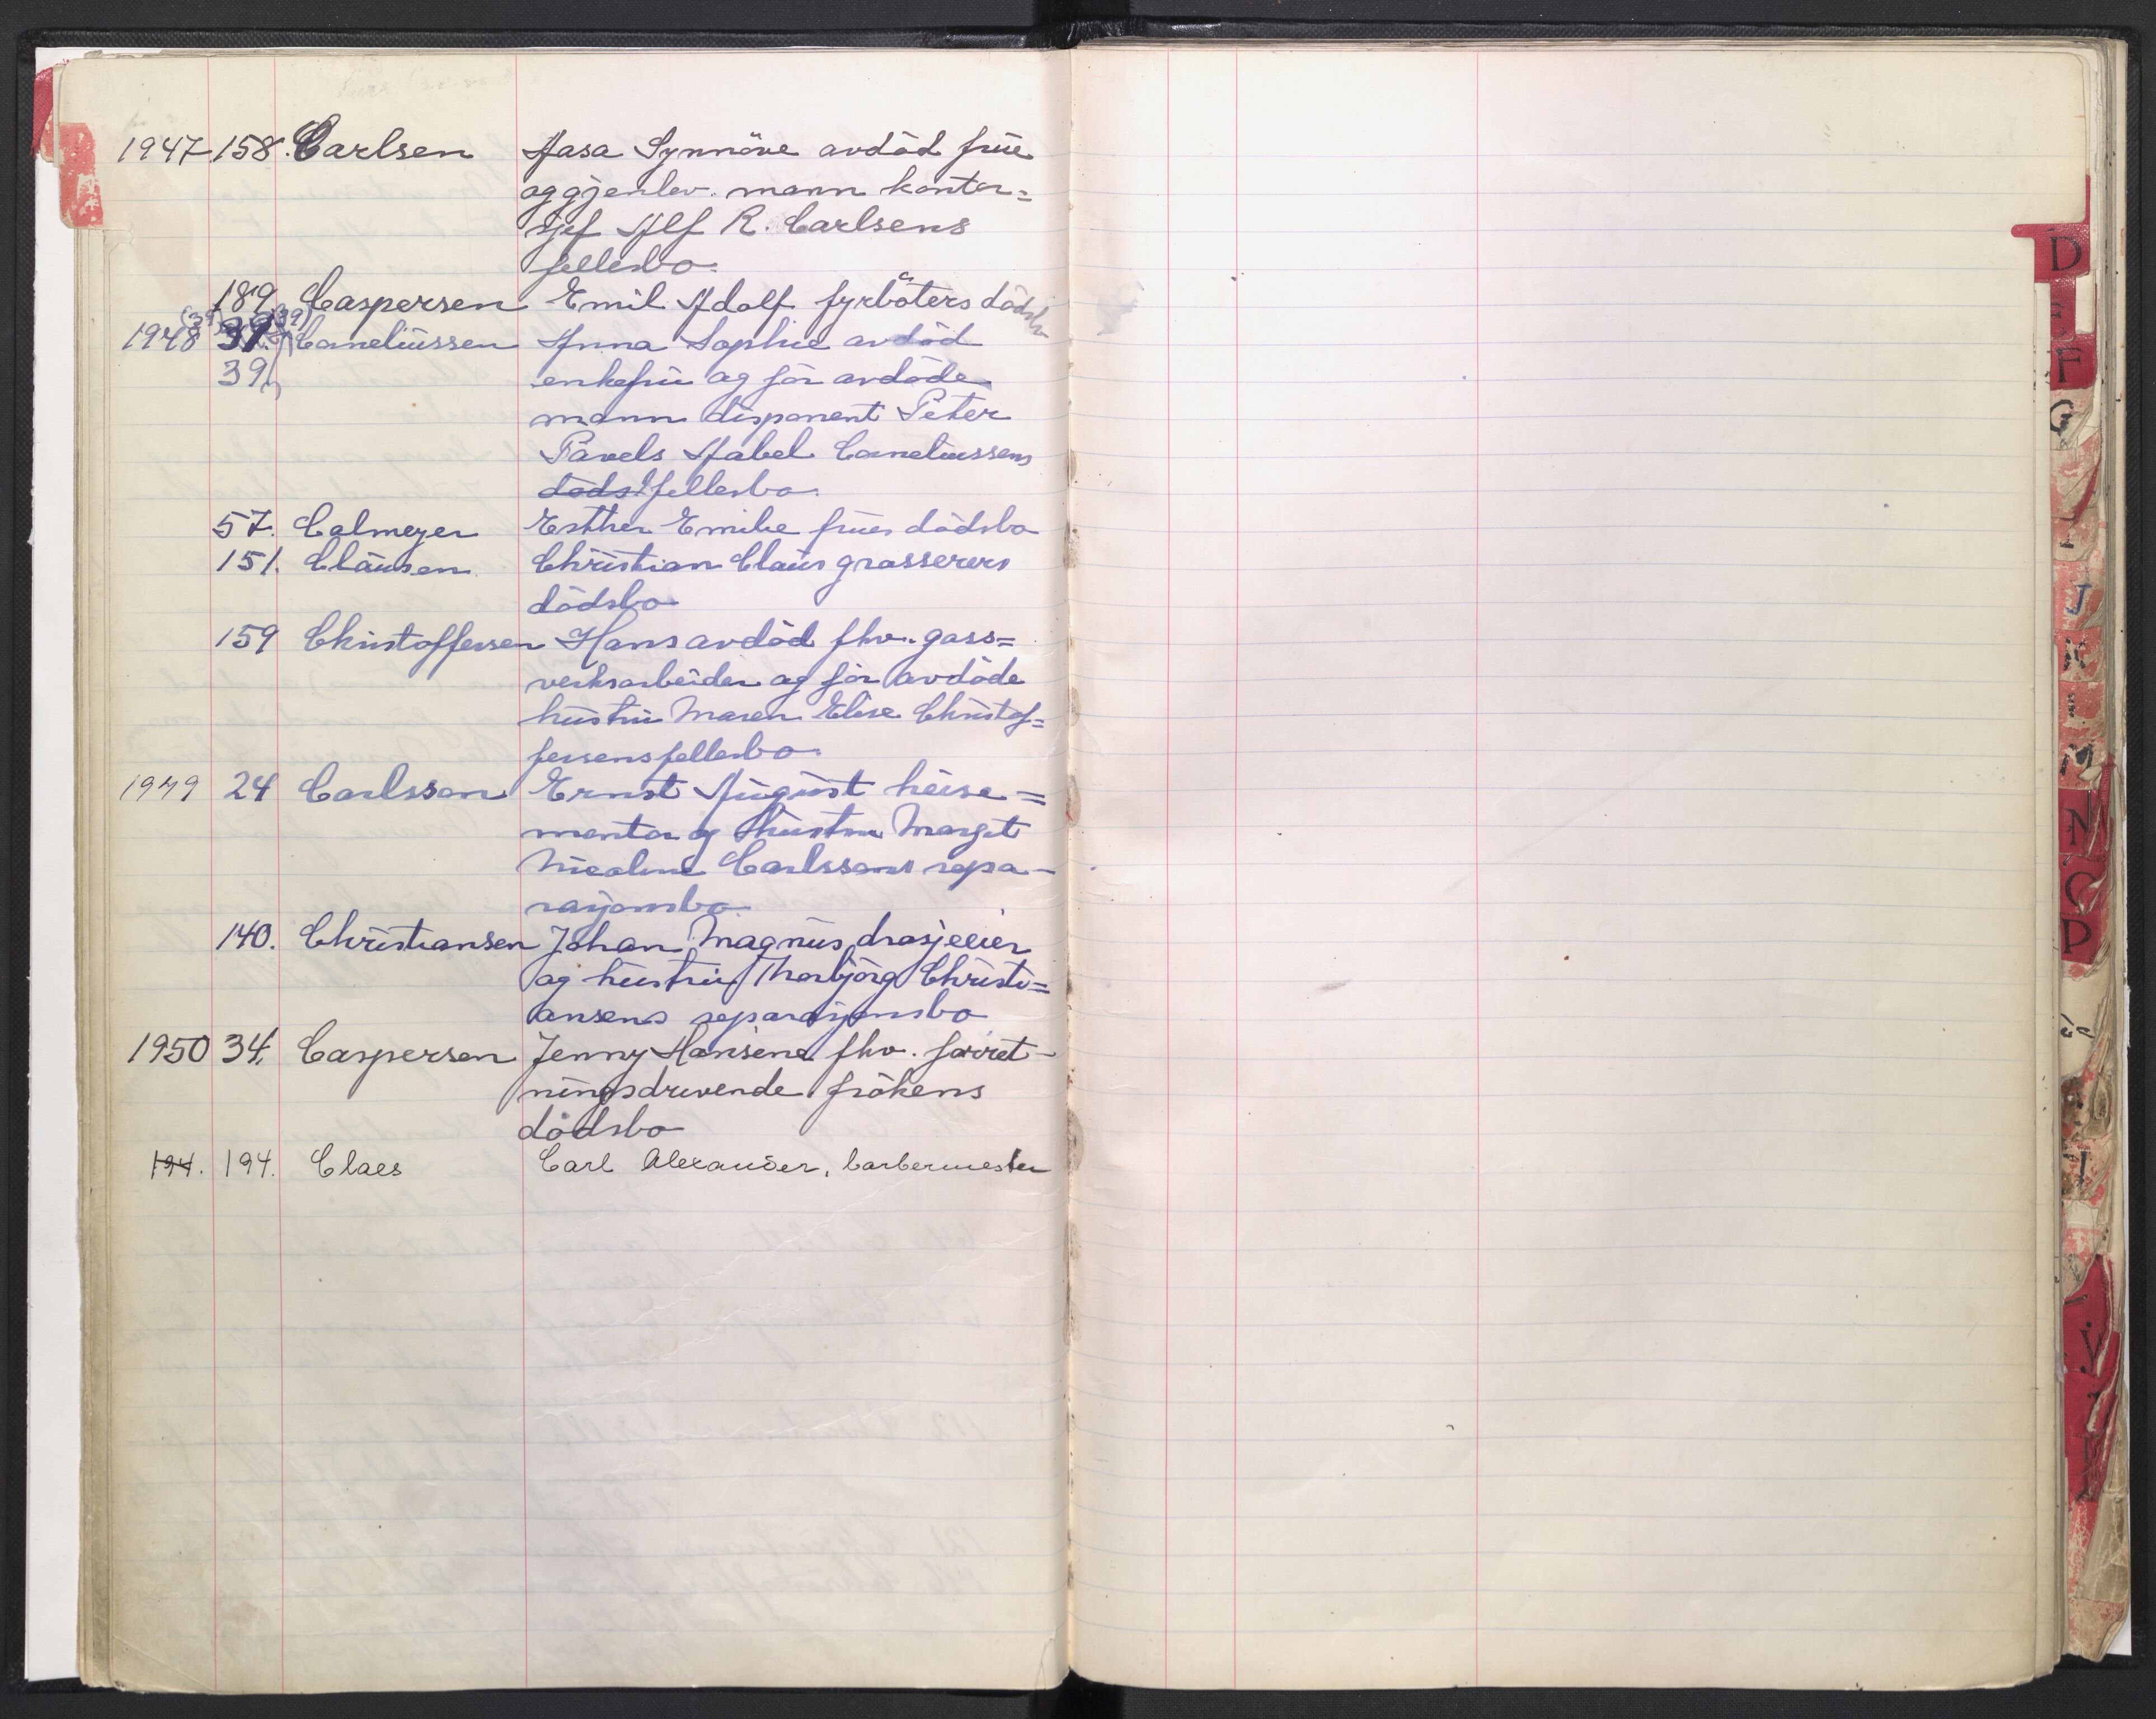 1947 158. Carlsen Aasa Synnöve avdöd frue
og gjenlev. mann kontor=
sjef Alf R. Carlsens
fellesbo.
189 Caspersen Emil Adolf fyrböters dödsbo
(39) (39)
1948 39 Corneliussen Anna Sophie avdöd
39 enkefru og för avdöde
mann disponent Peter
Pavels Aabel Corneliussens
döds fellesbo.
57. Calmeyer Esther Emilie frues dödsbo
151. Clausen Christian Claus grosserers
dödsbo
159 Christoffersen Hans avdöd fhv. gass=
verksarbeider og för avdöde
hustru Maren Elise Christof=
fersens fellesbo.
1949 24 Carlsson Ernst August heise=
montör og hustru Margit
Nicoline Carlssons sepa-
rasjonsbo
140. Christiansen Johan Magnus drosjeeier
og hustru Thorbjörg Christi=
ansens separasjonsbo
1950 34. Caspersen Jenny Hansine fhv. forret-
ningsdrivende frökens
dödsbo
194. 194. Claes Carl Alexander, barbermester
D
F
G
J
K
M
N
O
P